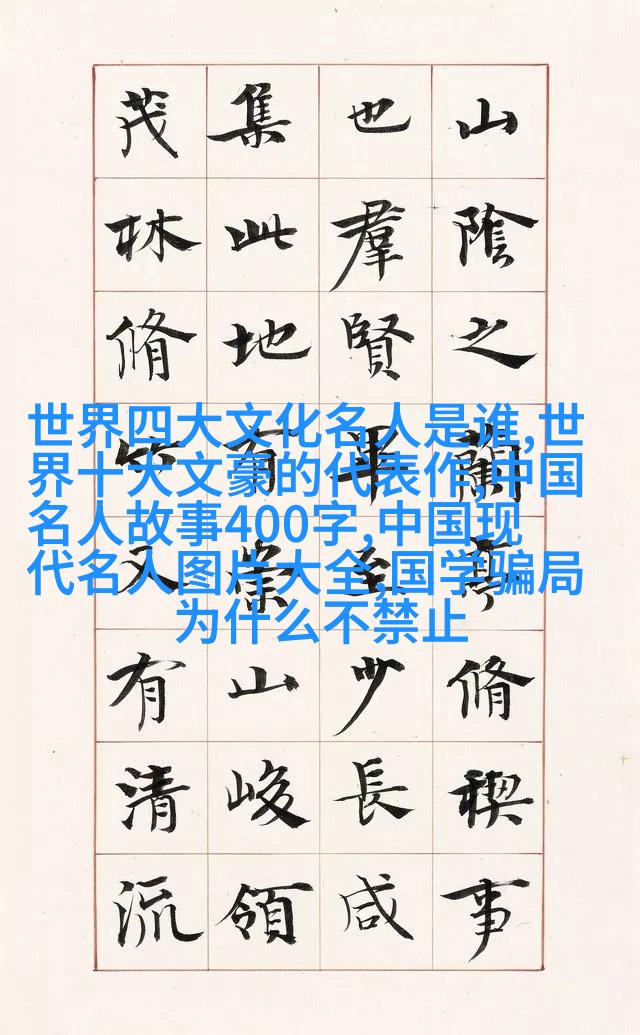 山陰之蘭亭脩禊事
也羣賢畢至少長咸
集此地有崇山峻領
茂林脩竹又有清流
世界四大文化名人是谁,世
界十大文豪的代表作,中国
名人故事400字,中国现
代名人图片大全,国学骗局
为什么不禁止